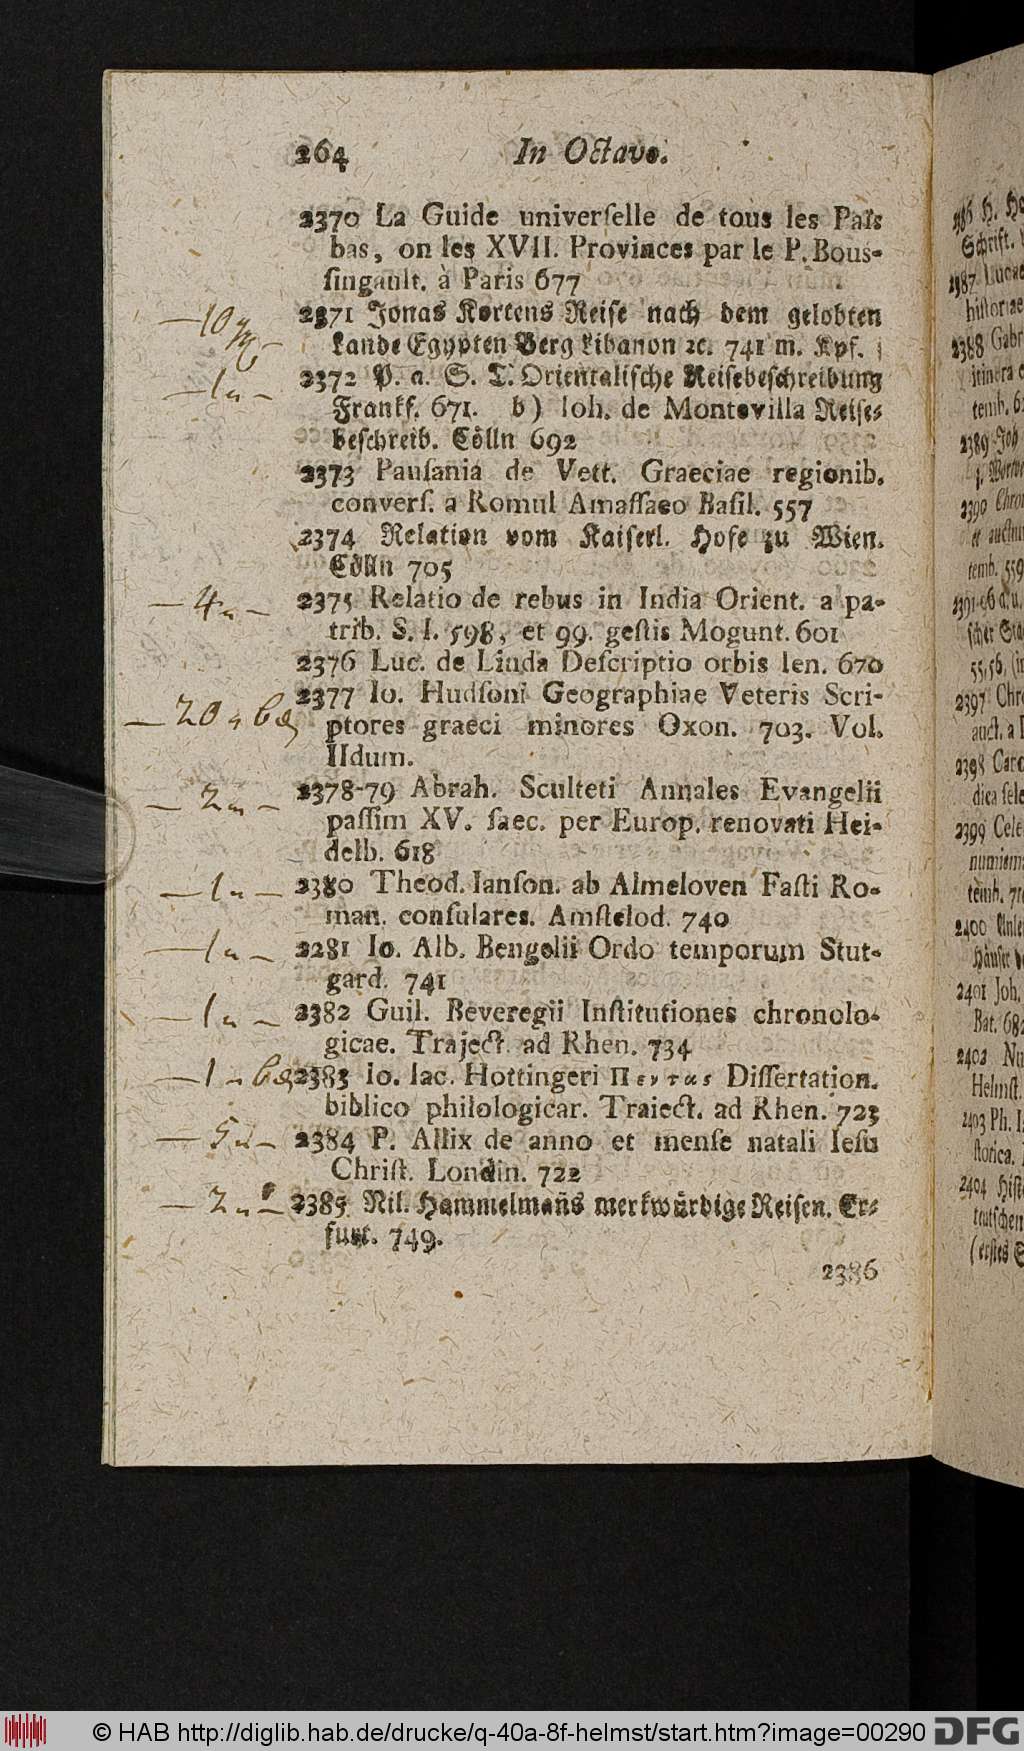 264 In Octavo.
2370 La Guide univerſelle de tous les Païs
bas, on les XVII. Provinces par le P. Bous-
ſingault. à Paris 677
—10
2371 Jonas Kortens Reiſe nach dem gelobten
Lande Egypten Berg Libanon ꝛc. 741 m. Kpf.
—1
2372 P. a. S. T. Orientaliſche Reiſebeſchreibung
Frankf. 671. b) Ioh. de Montevilla Reiſe-
beſchreib. Cölln 692
2373 Pauſania de Vett. Graeciae regionib.
converſ. a Romul Amaſſaeo Baſil. 557
2374 Relation vom Kaiſerl. Hofe zu Wien.
Cölln 705
— 4 —
2375 Relatio de rebus in India Orient. a pa-
trib. S. I. 598, et 99. geſtis Mogunt. 601
2376 Luc. de Linda Deſcriptio orbis len. 670
— 20
2377 Io. Hudſoni Geographiae Veteris Scri-
ptores graeci minores Oxon. 703. Vol.
IIdum.
— 2 —
2378-79 Abrah. Sculteti Annales Evangelii
paſſim XV. ſaec. per Europ. renovati Hei-
delb. 618
— 1 —
2380 Theod. Ianſon. ab Almeloven Faſti Ro-
man. conſulares. Amſtelod. 740
— 1 —
2281 Io. Alb. Bengelii Ordo temporum Stut-
gard. 741
— 1 —
2382 Guil. Beveregii Inſtitutiones chronolo-
gicae. Traject. ad Rhen. 734
— 1
2383 Io. Iac. Hottingeri Πεντας Diſſertation.
biblico philologicar. Traiect. ad Rhen. 723
— 5 —
2384 P. Allix de anno et menſe natali Ieſu
Chriſt. Londin. 722
— 2 —
2385 Nil. Hammelmañs merkwürdige Reiſen. Er-
furt. 749.
2386
© HAB http://diglib.hab.de/drucke/q-40a-8f-helmst/start.htm?image=00290 DFG